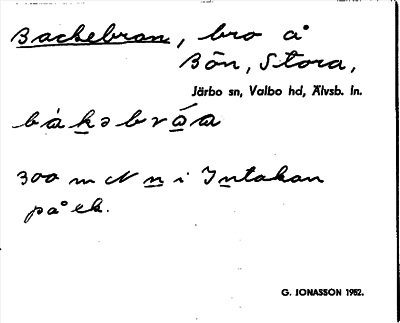 Backebron, bro å
Bön, Stora,
Järbo sn, Valbo hd, Älvsb. ln.
bákəbróa
300 m N n i Intakan
på ek.
G. JONASSON 1982.